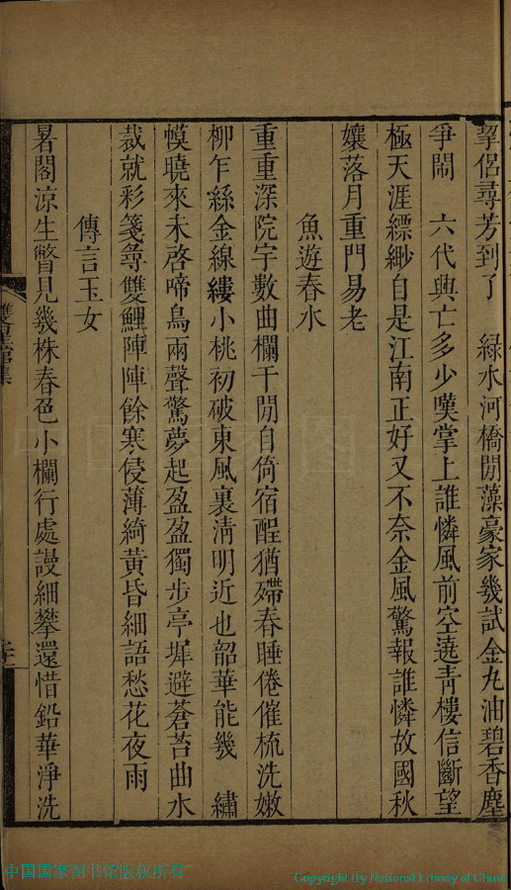 挈侶尋芳到了　綠水河橋閒藻豪家幾試金丸油碧香塵
爭鬧　六代興亡多少嘆掌上誰憐風前空遶靑樓信斷望
極天涯縹緲自是江南正好又不奈金風驚報誰憐故國秋
孃落月重門易老
魚遊春水
重重深院宇數曲欄干閒自倚宿酲猶殢春睡倦催梳洗嫩
柳乍絲金線縷小桃初破東風裏淸明近也韶華能幾　繡
幙曉來未啓啼鳥兩聲驚夢起盈盈獨步亭墀避蒼苔曲水
裁就彩箋尋雙鯉陣陣餘寒侵薄綺黃昏細語愁花夜雨
傳言玉女
暑閣涼生瞥見幾株春色小欄行處謾細攀還惜鉛華淨洗
中国国家图书馆版权所有
Copyright By National Library of China